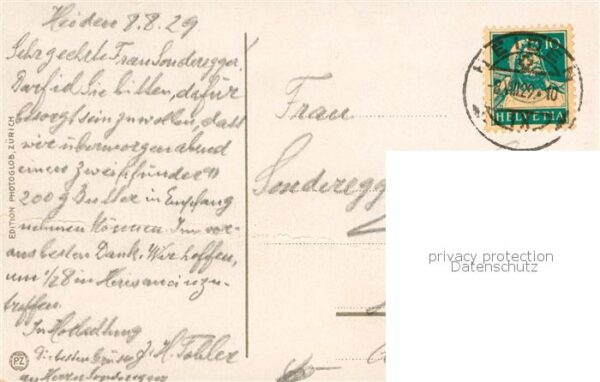 Heiden 8.8.29
Sehr geehrte Frau Sonderegger.
Darf ich Sie bitten, dafür
besorgt sein zu wollen, dass
wir übermorgen abend
einen Zweipfünder u
200 g Butter in Empfang
nehmen können. Im vor-
aus besten Dank. Wir hoffen,
um 1/2 8 in Herisau einzu-
treffen.
In Hochachtung
die besten Grüsse H. Tobler
an Herrn Sonderegger
EDITION PHOTOGLOB, ZÜRICH
PZ
Frau
Sonderegg
10
HELVETIA
HEIDEN
8.VIII.29.-10
privacy protection
Datenschutz